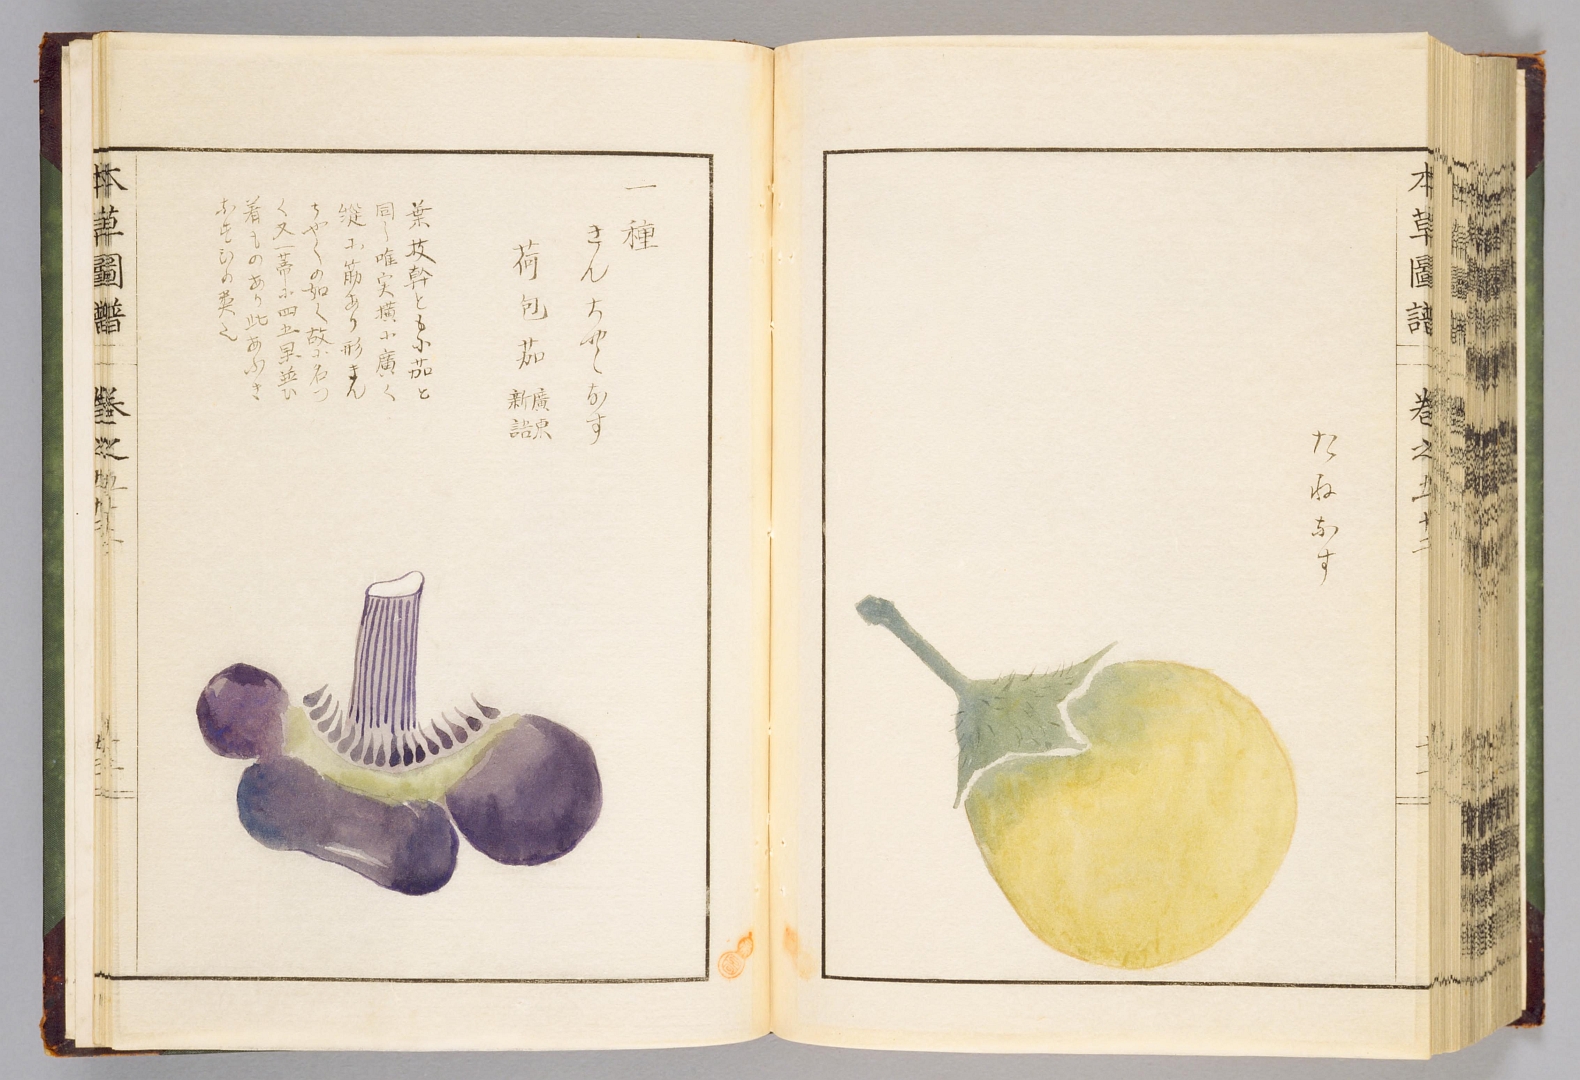 本草圖譜
卷之五十二
たねなす
一種
きんちやくなす
荷包茄 廣東新語
葉枝幹ともに茄と
同し唯実横に廣く
縦に筋あり形きん
ちやくの如く故に名つ
く又一蒂に四五果並ひ
着ものあり此あふき
本草圖譜